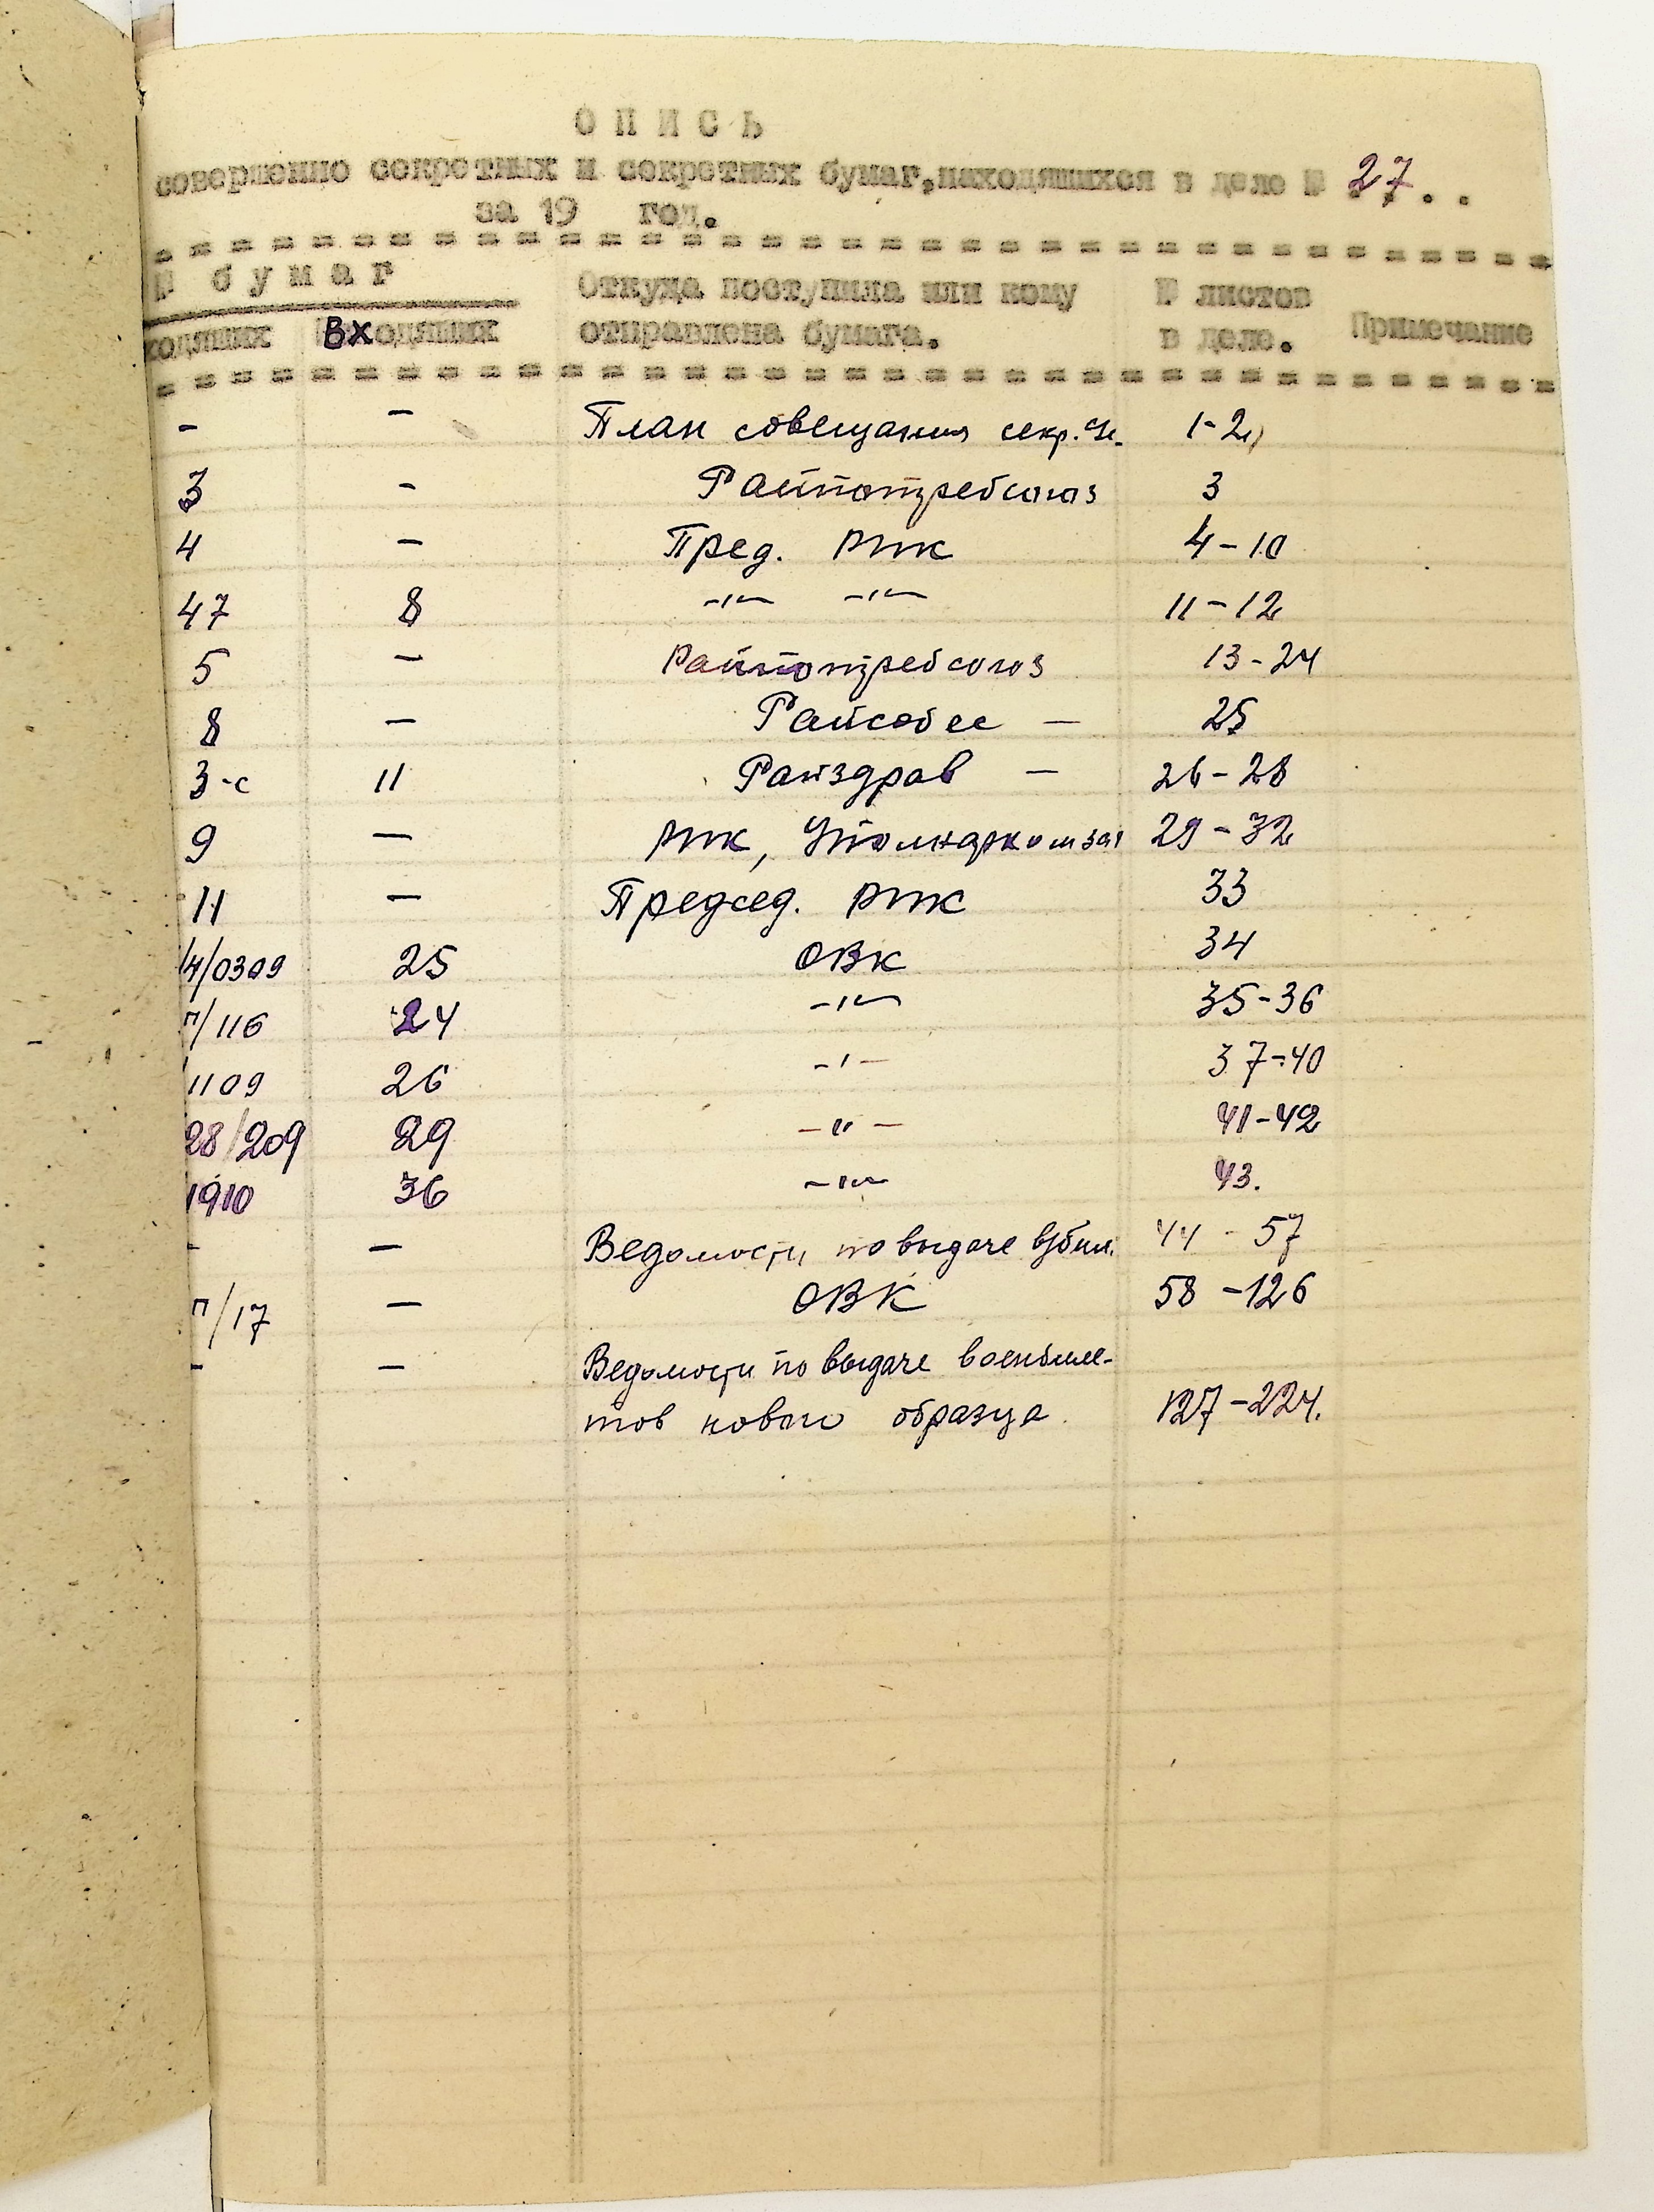 О П И С Ь
совершенно секретных и секретных бумаг,находящихся в деле № 27 . .
за 19 год.
№ б у м а г
Откуда поступила или кому № листов
ходящих Входящих отправлена бумага. в деле. Примечание
- - План совещания секр. 1-2
3 - Райпотребсоюз 3
4 - Пред. РИК 4-10
47 8 -"- -"- 11-12
5 - Райпотребсоюз 13-24
8 - Райсобес - 25
3-с 11 Райздрав - 26-28
9 - РИК, Уполнаркомзаг 29-32
11 - Председ. РИК 33
14/0309 25 ОВК 34
п/116 24 -"- 35-36
1109 26 -"- 37-40
28/209 29 -"- 41-42
1910 36 -"- 43.
- - Ведомости по выдаче в/бил. 44 - 57
п/17 - ОВК 58 - 126
- - Ведомости по выдаче военбиле-
тов нового образца 127-224.